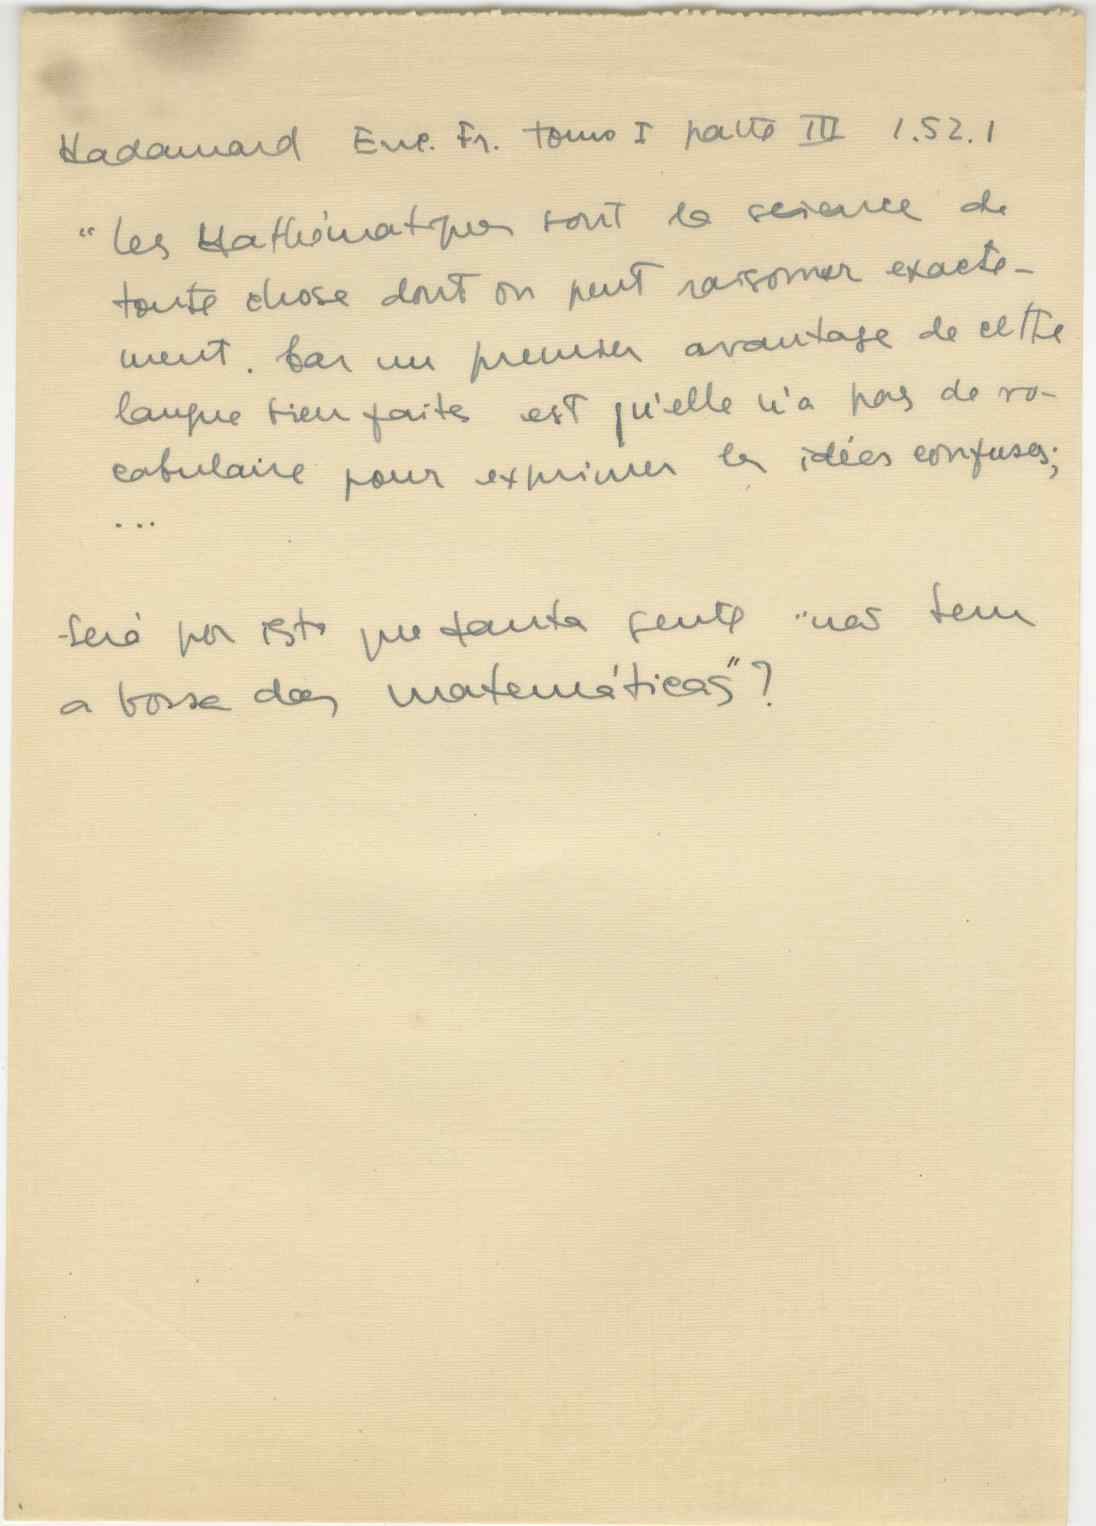 Hadamard Enc. Fr. tomo I parte III 1.52.1
"Les Mathématiques sont la science de
toute chose dont on peut raisonner exacte-
ment. Car un premier avantage de cette
langue bien faite est qu'elle n'a pas de vo-
cabulaire pour exprimer les idées confuses;
...
Será por isto que tanta gente "não tem
a bossa das matemáticas"?